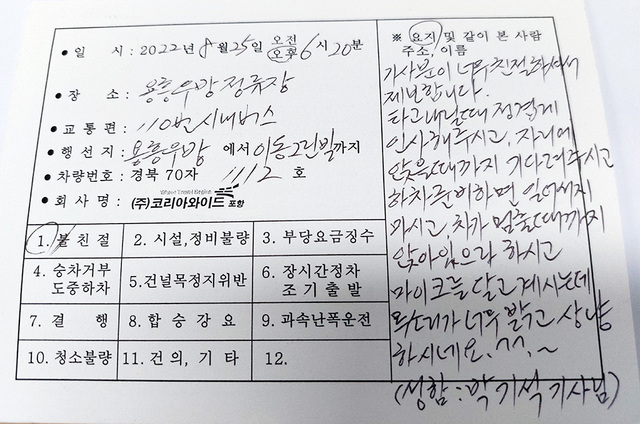 • 일 시 : 2022년 8월 25일 오전 오후 6시 20분
• 장 소 : 용흥우방정류장
• 교 통 편 : 110번 시내버스
• 행 선 지 : 용흥우방 에서 이동그린빌까지
• 차량번호 : 경북 70자 1112 호
• 회 사 명 : (주)코리아와이드 포항
1. 불 친 절 2. 시설,정비불량 3. 부당요금징수
4. 승차거부 도중하차 5.건널목정지위반 6. 장시간정차 조 기 출 발
7. 결 행 8. 합 승 강 요 9. 과속난폭운전
10. 청소불량 11. 건 의, 기 타 12.
※ 요지 및 같이 본 사람
주소, 이름
기사분이 너무 친절하셔서
제보합니다.
타고내릴때 정겹게
인사해주시고, 자리에
앉을때까지 기다려주시고
하차준비하면 일어서지
마시고 차가 멈출때까지
앉아있으라 하시고
마이크를 달고계시는데
목소리가 너무 밝고 상냥
하시네요. ^^. ~
(성함 : 박기석 기사님)